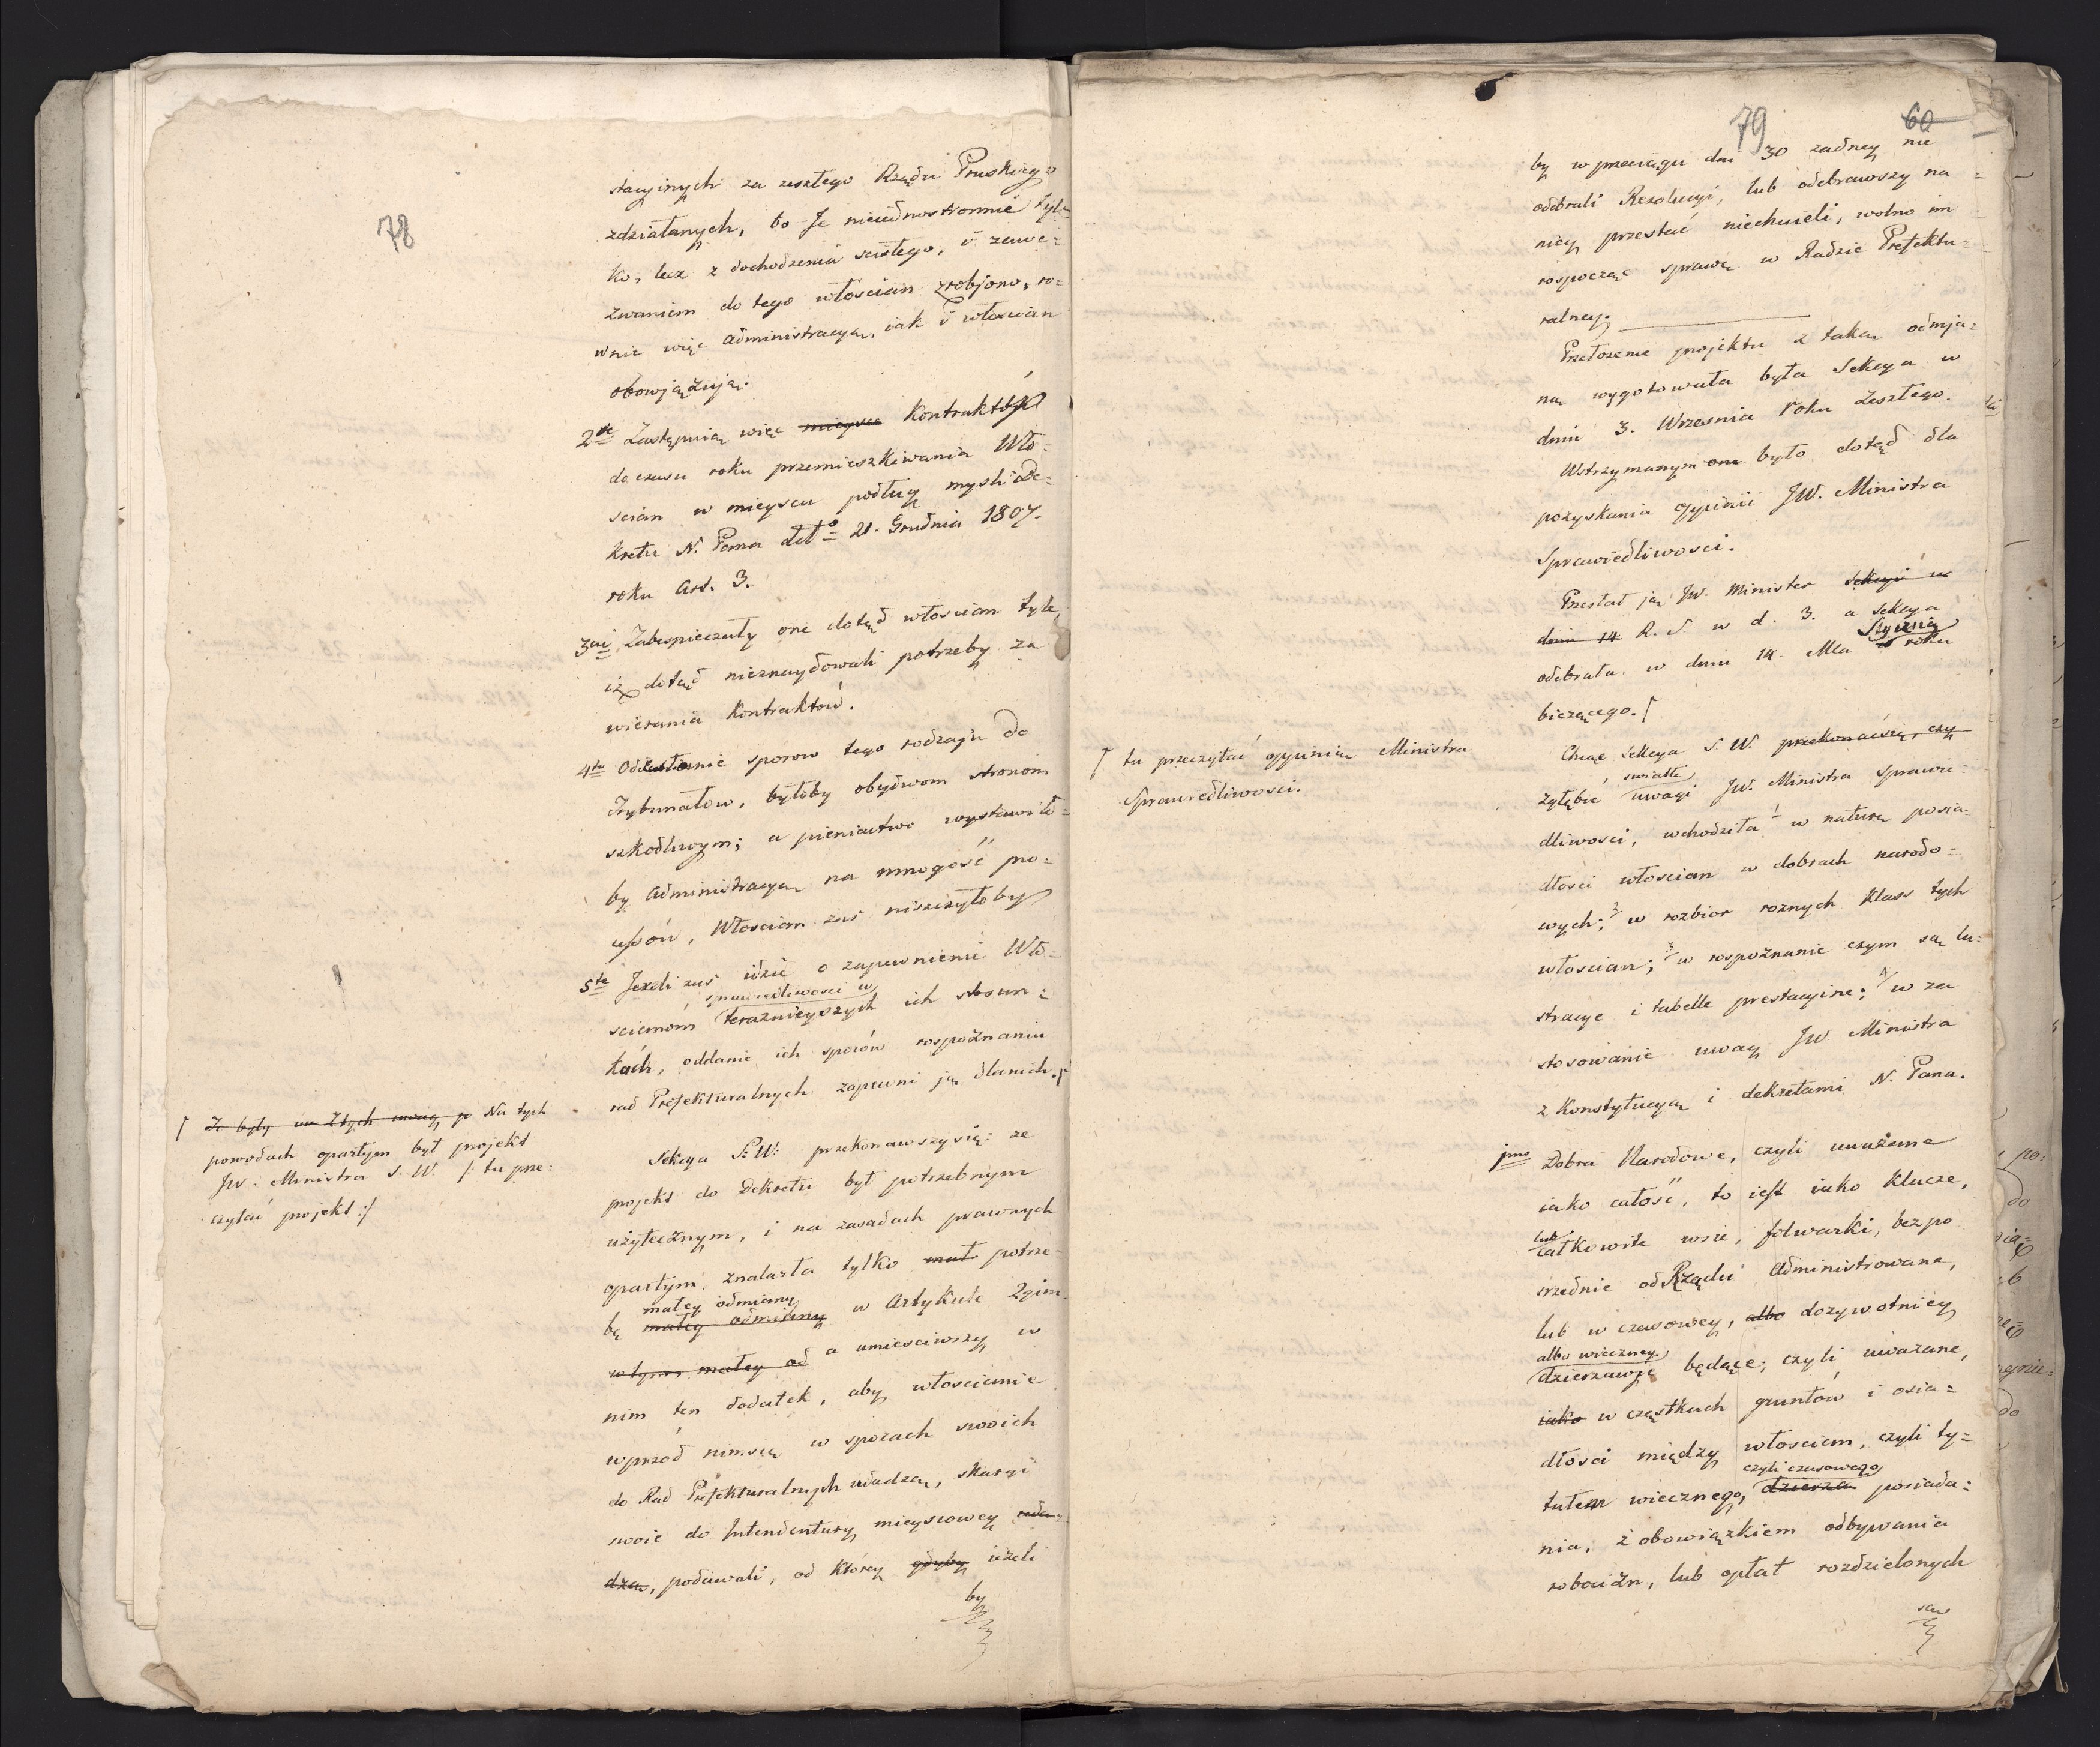 78
stacyinych za zeszłego Rządu Pruskiego
zdziałanych, bo Je niejednostronnie tyl=
ko, lecz z dochodzenia scisłego, i zawe=
zwaniem do tego włoscian zrobjono, ro=
wnie więc administracyą, iak i włoscian
obowjązują.
2re Zastępuią więc mieysce Kontraktów
do czasu roku przemieszkiwania Wło=
scian w mieyscu podług mysli De=
kretu N. Pana dtto 21. Grudnia 1807.
roku Art. 3.
3cie Zabespieczały one dotąd włoscian tyle,
iż dotąd nieznaydowali potrzeby za
wierania Kontraktów.
4te Odesłanie sporow tego rodzaju do
Trybunałow, byłoby obydwom stronom
szkodliwym; a pieniactwo wystawiło=
by administracyą na mnogość pro=
cessów, Włoscian zaś niszczyłoby
5te Jezeli zaś idzie o zapewnienie Wło=
sprawiedliwosci w
scianóm terazniejszych ich stosun=
kách, oddanie ich sporów rospoznaniu
rad Prefekturalnych zapewni ją dlanich.
Na tych
powodach opartym był projekt
JW. Ministra S. W. /: tu prze=
czytać projekt :/
Sekcya S. W. przekonawszy się: ze
projekt do Dekretu był potrzebnym
użytecznym, i na zasadach prawnych
opartym, znalazła tylko mał potrze=
małey odmiany
bę małey odmiany w Artykule 2gim
w tym małey od a umiesciwszy w
nim ten dodatek, aby włoscianie
wprzód nim się w sporach swoich
do Rad Prefekturalnych udadzą, skargi
swoie do Intendentury mieyscowey
podawali, od którey gdyby ieżeli
by
79
60
by w przeciągu dni 30 zadney nie
odebrali Rezolucyi, lub odebrawszy na=
niey przestać niechcieli, wolno im
rospocząć sprawę w Radzie Prefektu=
ralney.
Przełozenie projektu z taką odmja=
ną wygotowała była Sekcya w
dniu 3. Wrzesnia roku Zeszłego.
Wstrzymanym one było dotąd dla
pozyskania opinii JW. Ministra
Sprawiedliwosci.
Przesłał ją JW. Minister Sekcyi w
dniu 14 R. S. w d. 3. a Sekcya
Stycznia
odebrała w dniu 14. Mca roku
bieżącego.
tu przeczytać opinią Ministra
Sprawiedliwosci.
Chcąc Sekcya S. W. przekonać się, czy
swiatłe
zgłębić uwagi JW. Ministra Sprawie=
dliwosci, wchodziła 1/ w naturę posia=
dłosci włoscian w dobrach narodo=
wych; 2/ w rozbior roznych Klass tych
włoscian; 3/ w rospoznanie czym są lu=
stracye i tabelle prestacyine; 4/ w za
stosowanie uwag JW Ministra
z Konstytucyą i dekretami N. Pana.
jmo Dobra Narodowe, czyli uważane
iako całość, to iest iako Klucze,
lub
całkowite wsie, folwarki, bezpo
srednie od Rządu Administrowane,
lub w czasowey, albo dozywotniey
albo wieczney
dzierzawie będące; czyli uważane,
iako w cząstkach gruntów i osia=
dłosci między włoscian, czyli ty=
czyli czasowego
tułem wiecznego, dzierza posiada=
nia, z obowiązkiem odbywania
robocizn, lub opłat rozdzielonych